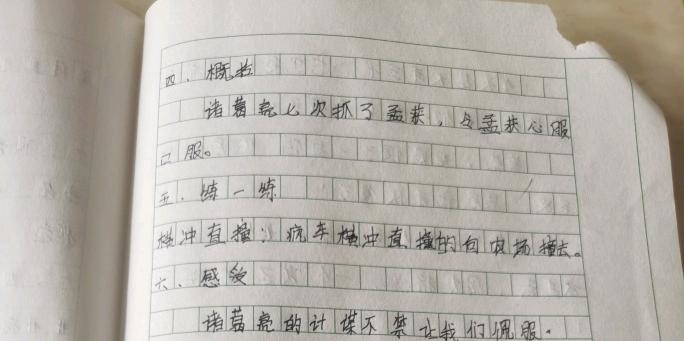 四、概括
诸葛亮七次抓了孟获，令孟获心服
口服。
五、练一练
横冲直撞：疯车横冲直撞的向农场撞去。
六、感受
诸葛亮的计谋不禁让我们佩服。